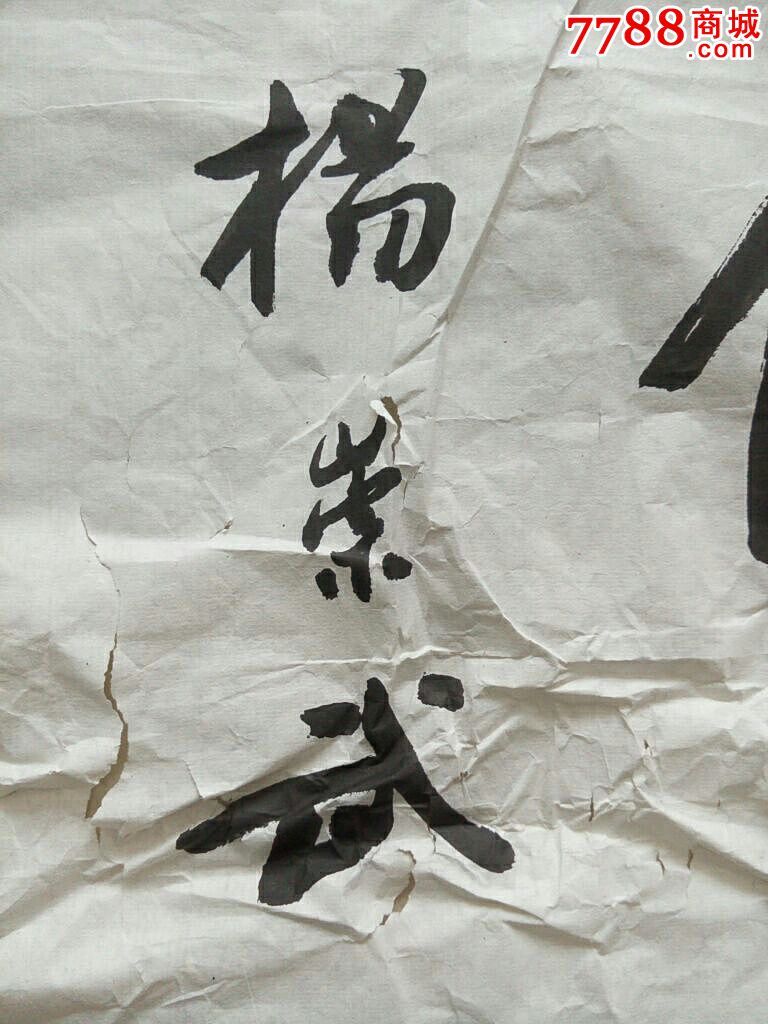 7788商城
.com
楊
崇
武